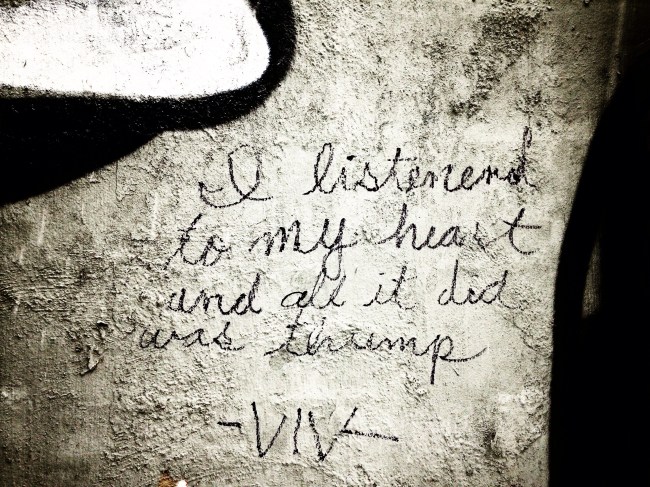 I listenend
to my heart
and all it did
was thump
-VIV-